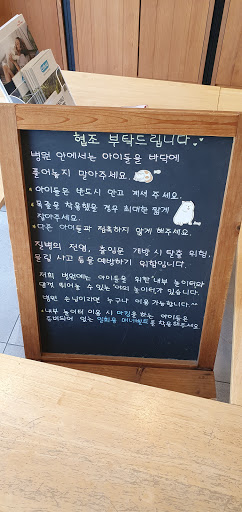 협조 부탁드립니다.
병원 안에서는 아이들을 바닥에
풀어놓지 말아주세요.
* 아이들은 반드시 안고 계셔 주세요.
* 목줄을 착용했을 경우 최대한 짧게
잡아주세요.
* 다른 아이들과 접촉하지 않게 해주세요.
질병의 전염, 출입문 개방 시 탈출 위험,
물림 사고 등을 예방하기 위함입니다.
저희 병원에는 아이들을 위한 "내부 놀이터"와
맘껏 뛰어놀 수 있는 "야외 놀이터"가 있습니다.
병원 손님이라면 누구나 이용 가능합니다.^^
* 내부 놀이터 이용 시 마킹을 하는 아이들은
준비되어 있는 일회용 매너벨트를 착용해주세요